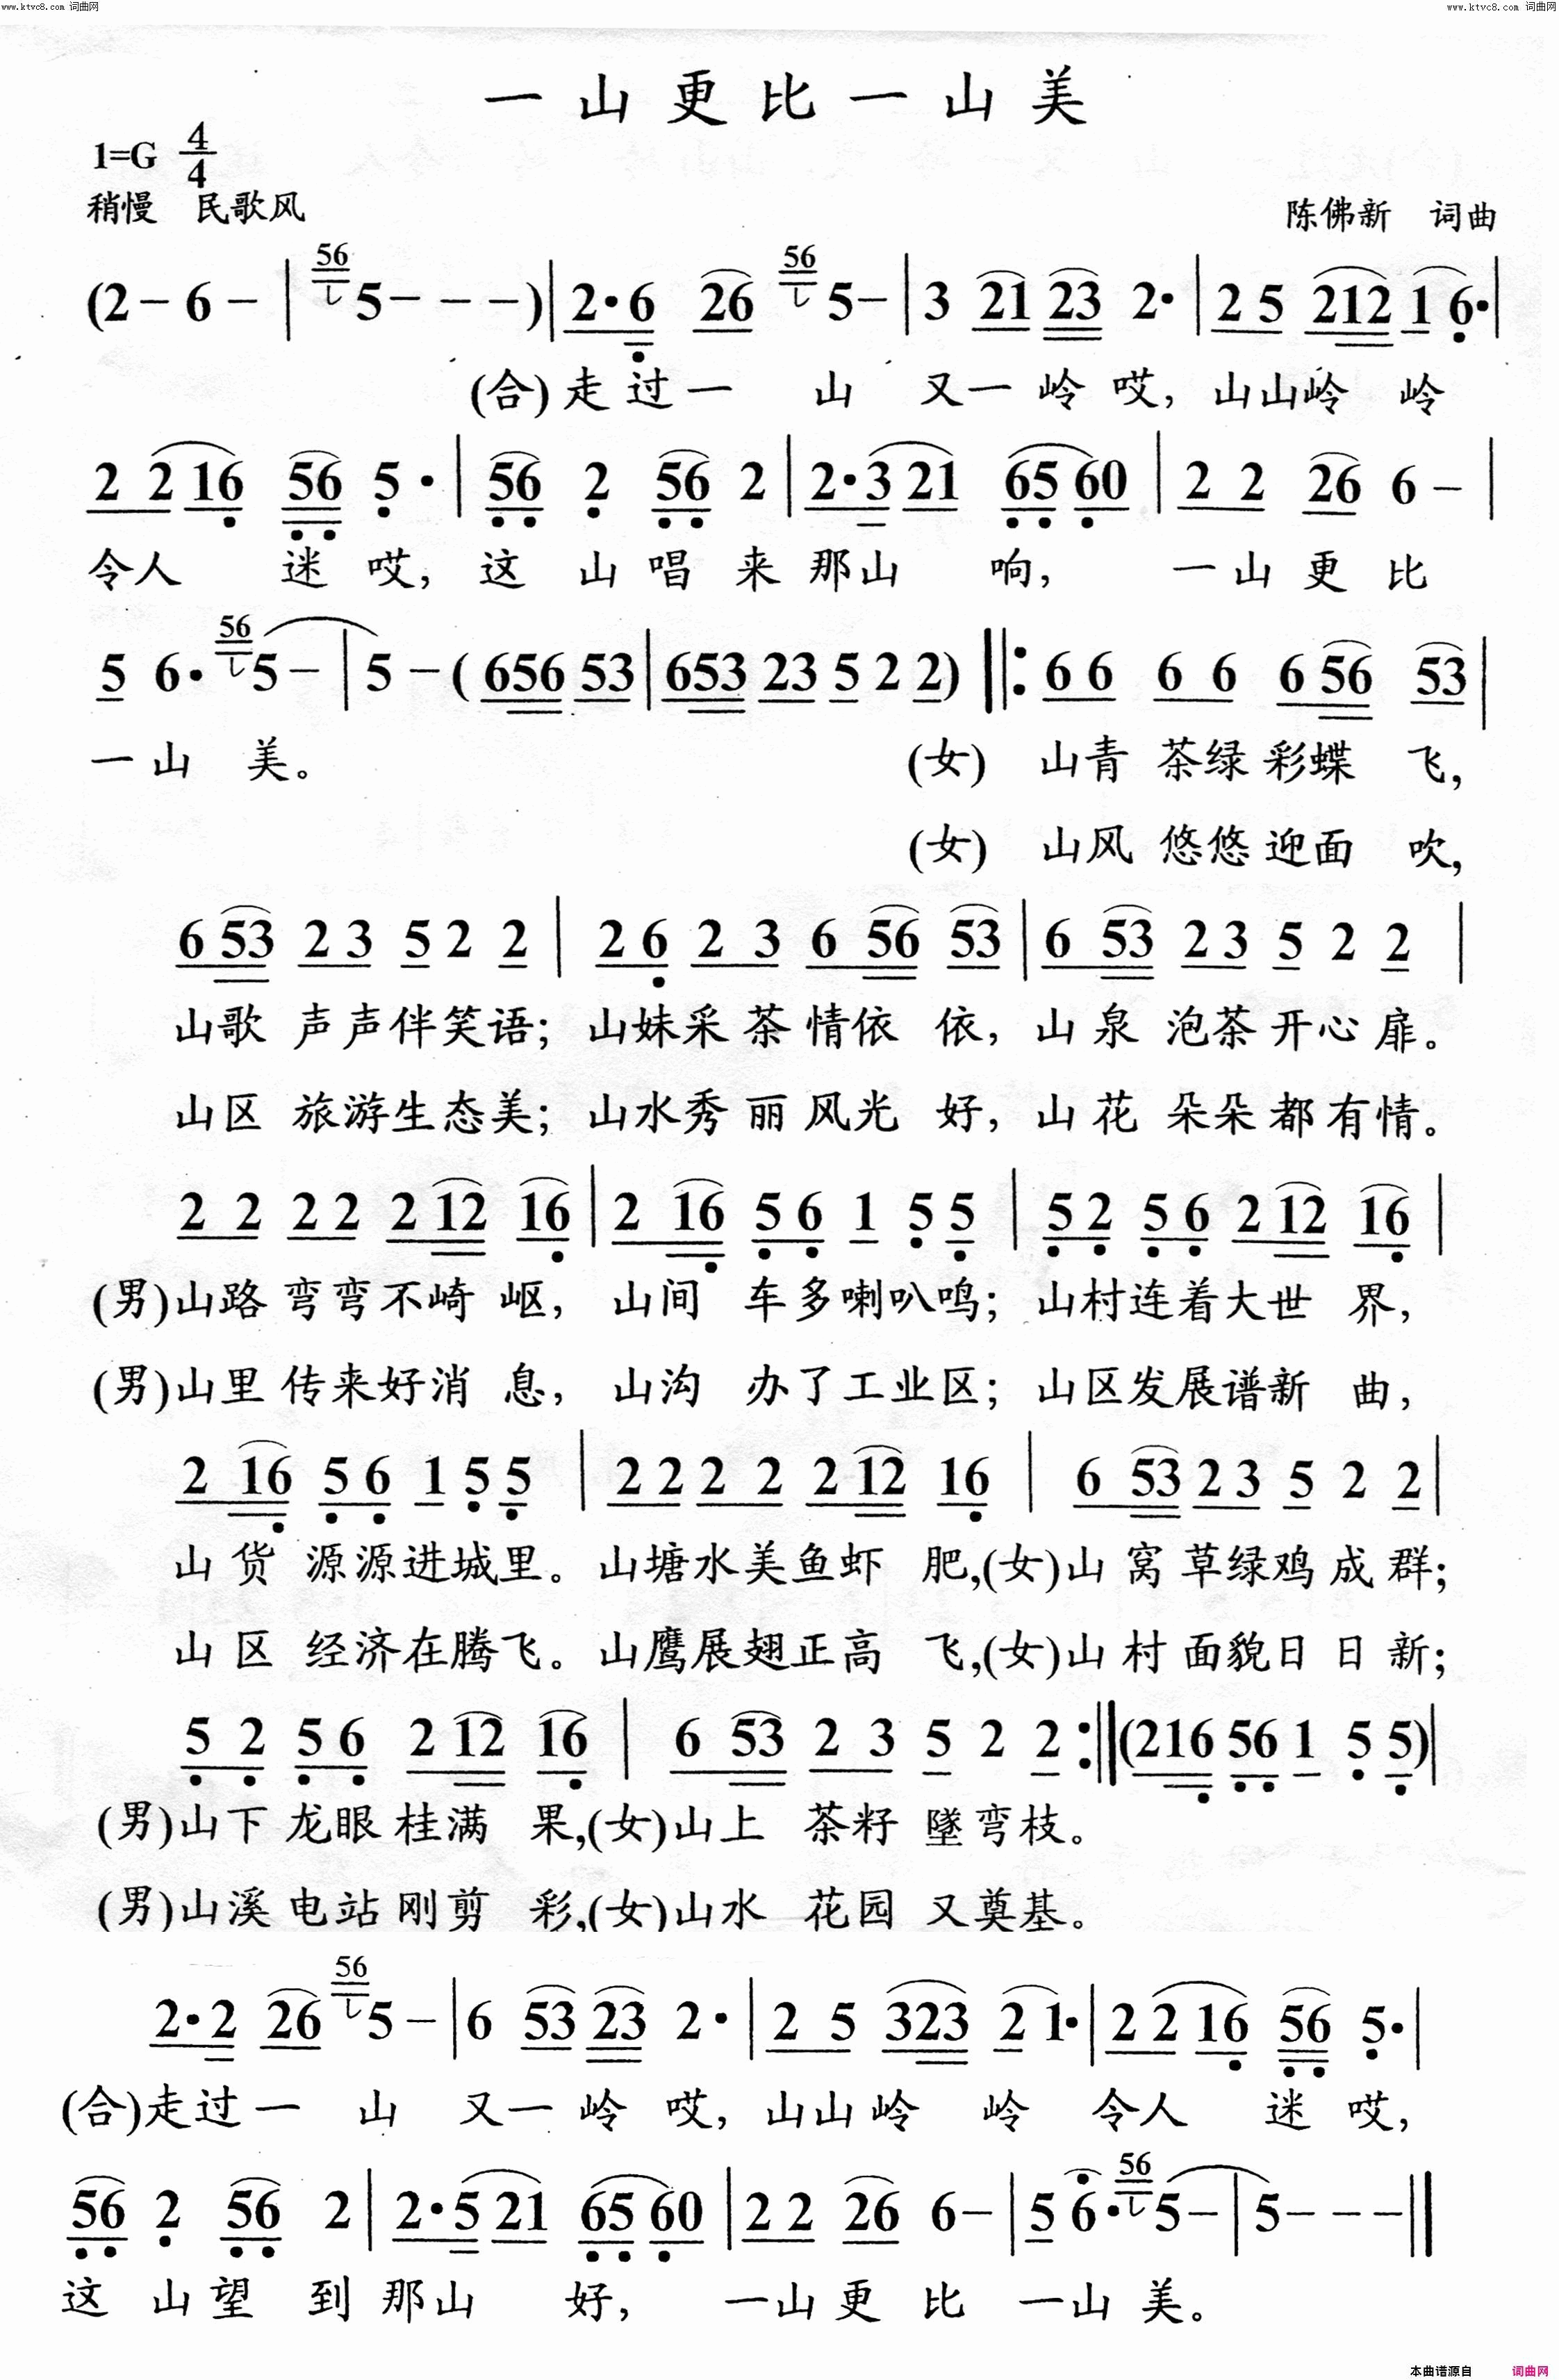 www.ktvc8.com 词曲网 www.ktvc8.com 词曲网
一山更比一山美
1=G 4/4
稍慢 民歌风
陈佛新 词曲
56 56
(2 – 6 – | 5 – – – )| 2·6 26 5 – | 3 21 23 2· | 2 5 212 1 6· |
(合)走过一 山 又一岭哎, 山山岭 岭
2 2 16 56 5· | 56 2 56 2 | 2·3 21 65 60 | 2 2 26 6 – |
令人 迷哎, 这 山唱 来那山 响, 一山更比
56
5 6· 5 – | 5 – (656 53 | 653 23 5 2 2) ‖: 6 6 6 6 6 56 53 |
一山 美。 (女) 山青 茶绿彩蝶 飞,
(女) 山风 悠悠迎面 吹,
6 53 2 3 5 2 2 | 2 6 2 3 6 56 53 | 6 53 2 3 5 2 2 |
山歌 声声伴笑语; 山妹采茶情依 依, 山泉 泡茶开心扉。
山区 旅游生态美; 山水秀丽风光 好, 山花 朵朵都有情。
2 2 2 2 2 12 16 | 2 16 5 6 1 5 5 | 5 2 5 6 2 12 16 |
(男)山路弯弯不崎 岖, 山间 车多喇叭鸣; 山村连着大世 界,
(男)山里传来好消 息, 山沟 办了工业区; 山区发展谱新 曲,
2 16 5 6 1 5 5 | 2 2 2 2 2 12 16 | 6 53 2 3 5 2 2 |
山货 源源进城里。山塘水美鱼虾 肥,(女)山窝草绿鸡成群;
山区 经济在腾飞。山鹰展翅正高 飞,(女)山村面貌日日新;
5 2 5 6 2 12 16 | 6 53 2 3 5 2 2 :‖ (216 56 1 5 5) |
(男)山下龙眼桂满 果,(女)山上 茶籽 墜弯枝。
(男)山溪电站刚剪 彩,(女)山水 花园 又奠基。
56
2·2 26 5 – | 6 53 23 2· | 2 5 323 2 1· | 2 2 16 56 5· |
(合)走过一 山 又一岭哎, 山山岭 岭 令人 迷哎,
56
56 2 56 2 | 2·5 21 65 60 | 2 2 26 6 – | 5 6· 5 – | 5 – – – ‖
这 山望 到那山 好, 一山更比 一山美。
本曲谱源自 词曲网